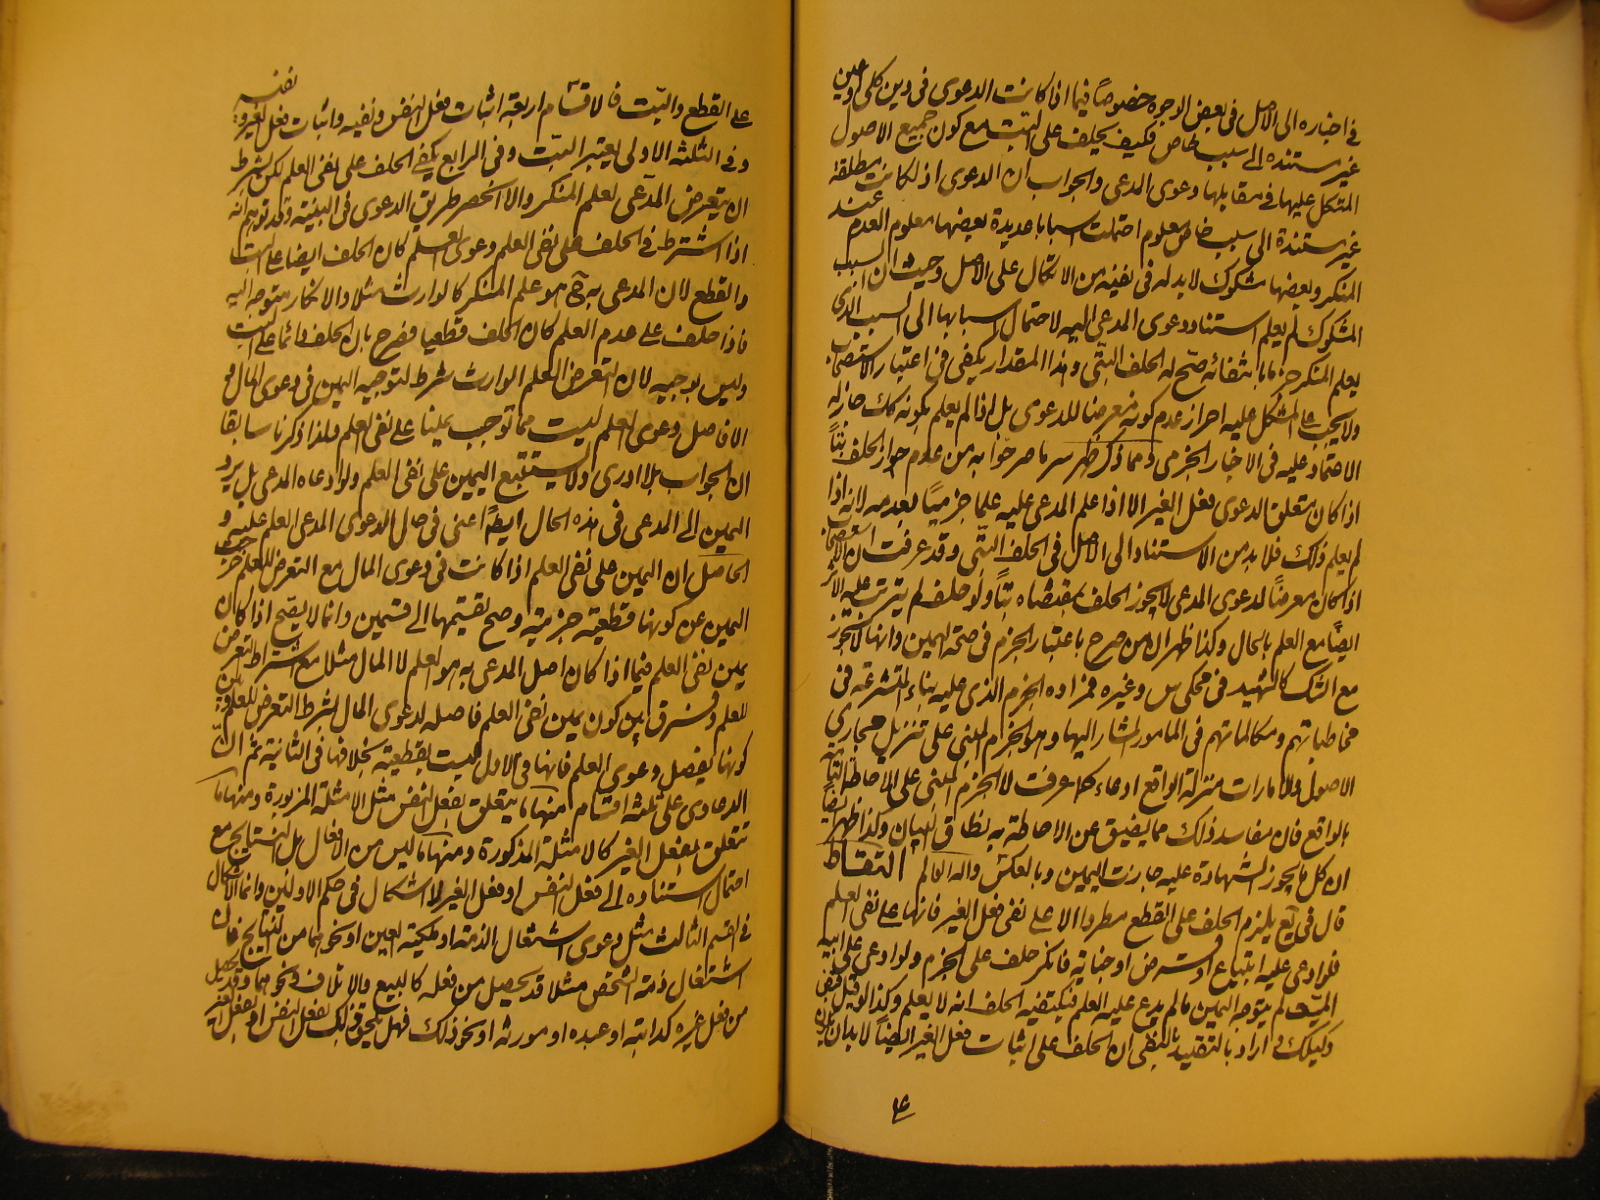 في اخباره الى الاصل في بعض الوجوه خصوصاً فيما اذا كانت الدعوى في دين كلى او عين
غير مستنده الى سبب خاص فكيف يحلف على البت مع كون جميع الاصول
المتكل عليها في مقابلها دعوى المدعى والجواب ان الدعوى اذا كانت مطلقة
غير مستندة الى سبب خاص معلوم احتملت اسبابا عديدة بعضها معلوم العدم عند
المنكر وبعضها مشكوك لابد له في نفيه من الاتكال على الاصل وحيث ان السبب
المشكوك لم يعلم استناد دعوى المدعى اليه لاحتمال اسبابها الى السبب الذى
يعلم المنكر جزما بانتفائه صح له الحلف البتى وهذا المقدار يكفى في اعتبار الاستصحاب
ولا يجب على المتكل عليه احراز عدم كونه معرضا للدعوى بل اذا لم يعلم بكونه كك جاز له
الاعتماد عليه في الاخبار الجزمى ومما ذكر ظهر سر ما صرحوا به من عدم جواز الحلف بتاً
اذا كان متعلق الدعوى فعل الغير الا اذا علم المدعى عليه علما جزميًا بعدمه لانه اذا
لم يعلم ذلك فلا بد من الاستناد الى الاصل في الحلف البتى وقد عرفت ان الاستصحاب
اذا كان معرضًا لدعوى المدعى لا يجوز الحلف بمقتضاه بتاً ولو حلف لم يترتب عليه الاثر
ايضًا مع العلم بالحال وكذا ظهر ان من صرح باعتبار الجزم في صحة اليمين وانها لا تجوز
مع الشك كالشهيد في محكى س وغيره فمراده الجزم الذى عليه بناء المتشرعة في
مخاطباتهم ومكالماتهم في المامور المشار اليها وهو الجزم المبنى على تنزيل مجارى
الاصول والامارات منزلة الواقع ادعاء كما عرفت لا الجزم المبنى على الاحاطة التامة
بالواقع فان مفاسد ذلك مما يضيق عن الاحاطة به نطاق البيان وكذا ظهر ايضاً
ان كل ما يجوز الشهادة عليه جازت اليمين وبالعكس والله العالم التقاط
قال في يع يلزم الحلف على القطع مطردا الا على نفى فعل الغير فانها على نفى العلم
فلو ادعى عليه ابتياع او قرض او جناية فانكر حلف على الجزم ولو ادعى على ابيه
الميت لم يتوجه اليمين ما لم يدع عليه العلم فيكفيه الحلف انه لا يعلم وكذا لو قيل قبض
وكيلك اراد بالتقييد بالنفى ان الحلف على اثبات فعل الغير ايضاً لابد ان يكون
على القطع والبت فالاقسام اربعة اثبات فعل النفس ونفيه واثبات فعل الغير ونفيه
وفي الثلثة الاولى يعتبر البت وفي الرابع يكفى الحلف على نفى العلم لكن بشرط
ان يتعرض المدعى لعلم المنكر والا انحصر طريق الدعوى في البينة وقد توهم انه
اذا اشترط في الحلف على نفى العلم دعوى العلم كان الحلف ايضا على البت
والقطع لان المدعى به ح هو علم المنكر كالوارث مثلا والانكار متوجه اليه
فاذا حلف على عدم العلم كان الحلف قطعيا فصرح بان الحلف دائما على البت
وليس بوجيه لان التعرض لعلم الوارث شرط لتوجيه اليمين في دعوى المال
الا فاصل دعوى العلم ليست مما توجب يمينا على نفى العلم ولذا ذكرنا سابقا
ان الجواب بلا ادرى ولا يستتبع اليمين على نفى العلم ولو ادعاه المدعى بل يرد
اليمين الى المدعى في هذه الحال ايضاً اعنى في حال دعوى المدعى العلم عليه و
الحاصل ان اليمين على نفى العلم اذا كانت في دعوى المال مع التعرض للعلم خرجت
اليمين عن كونها قطعية جزمية وصح تقسيمها الى قسمين وانما لا يصح اذا كان
يمين نفى العلم فيما اذا كان اصل المدعى به هو العلم لا المال مثلا مع اشتراط التعرض
للعلم وفرق بين كون يمين نفى العلم فاصله لدعوى المال بشرط التعرض للعلم وبين
كونها لفصل دعوى العلم فانها في الاول ليست بقطعية بخلافها في الثانية ثم ان
الدعاوى على ثلثة اقسام منها ما يتعلق بفعل النفس مثل الامثلة المزبورة ومنها ما
تتعلق بفعل الغير كالامثلة المذكورة ومنها ما ليس من الافعال بل النتايج مع
احتمال استناده الى فعل النفس او فعل الغير لا اشكال في حكم الاولين وانما الاشكال
في القسم الثالث مثل دعوى اشتغال الذمة او ملكية العين او نحوهما من النتايج فان
اشتغال ذمة الشخص مثلا قد يحصل من فعله كالبيع والاتلاف ونحوهما وقد يحصل
من فعل غيره كدابته او عبده او مورثه او نحو ذلك فهل يلحق ذلك بفعل النفس او بفعل الغير